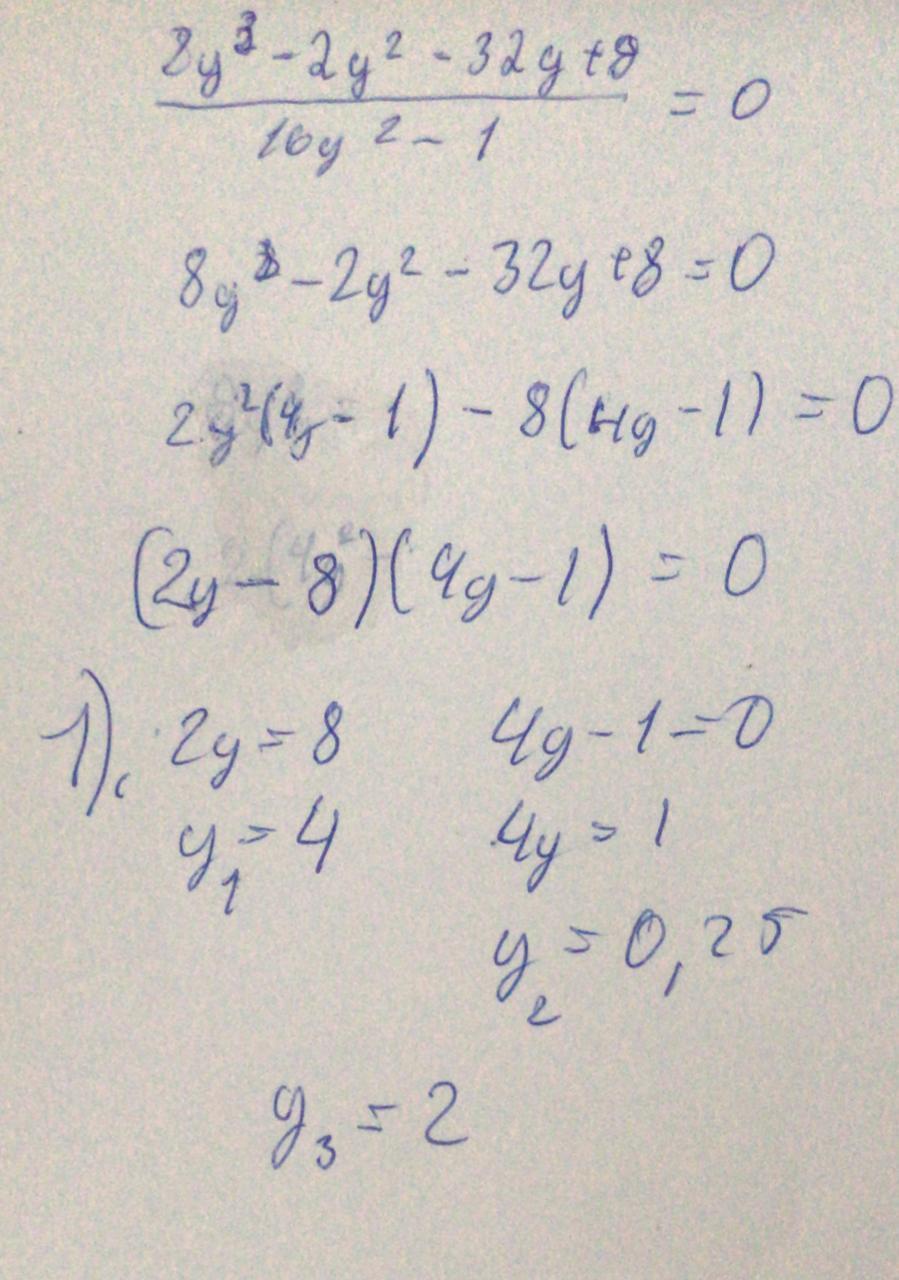 8y³ - 2y² - 32y + 8 / 16y² - 1 = 0
8y³ - 2y² - 32y + 8 = 0
2y²(4y - 1) - 8(4y - 1) = 0
(2y - 8)(4y - 1) = 0
1). 2y = 8 4y - 1 = 0
y₁ = 4 4y = 1
y₂ = 0,25
y₃ = 2